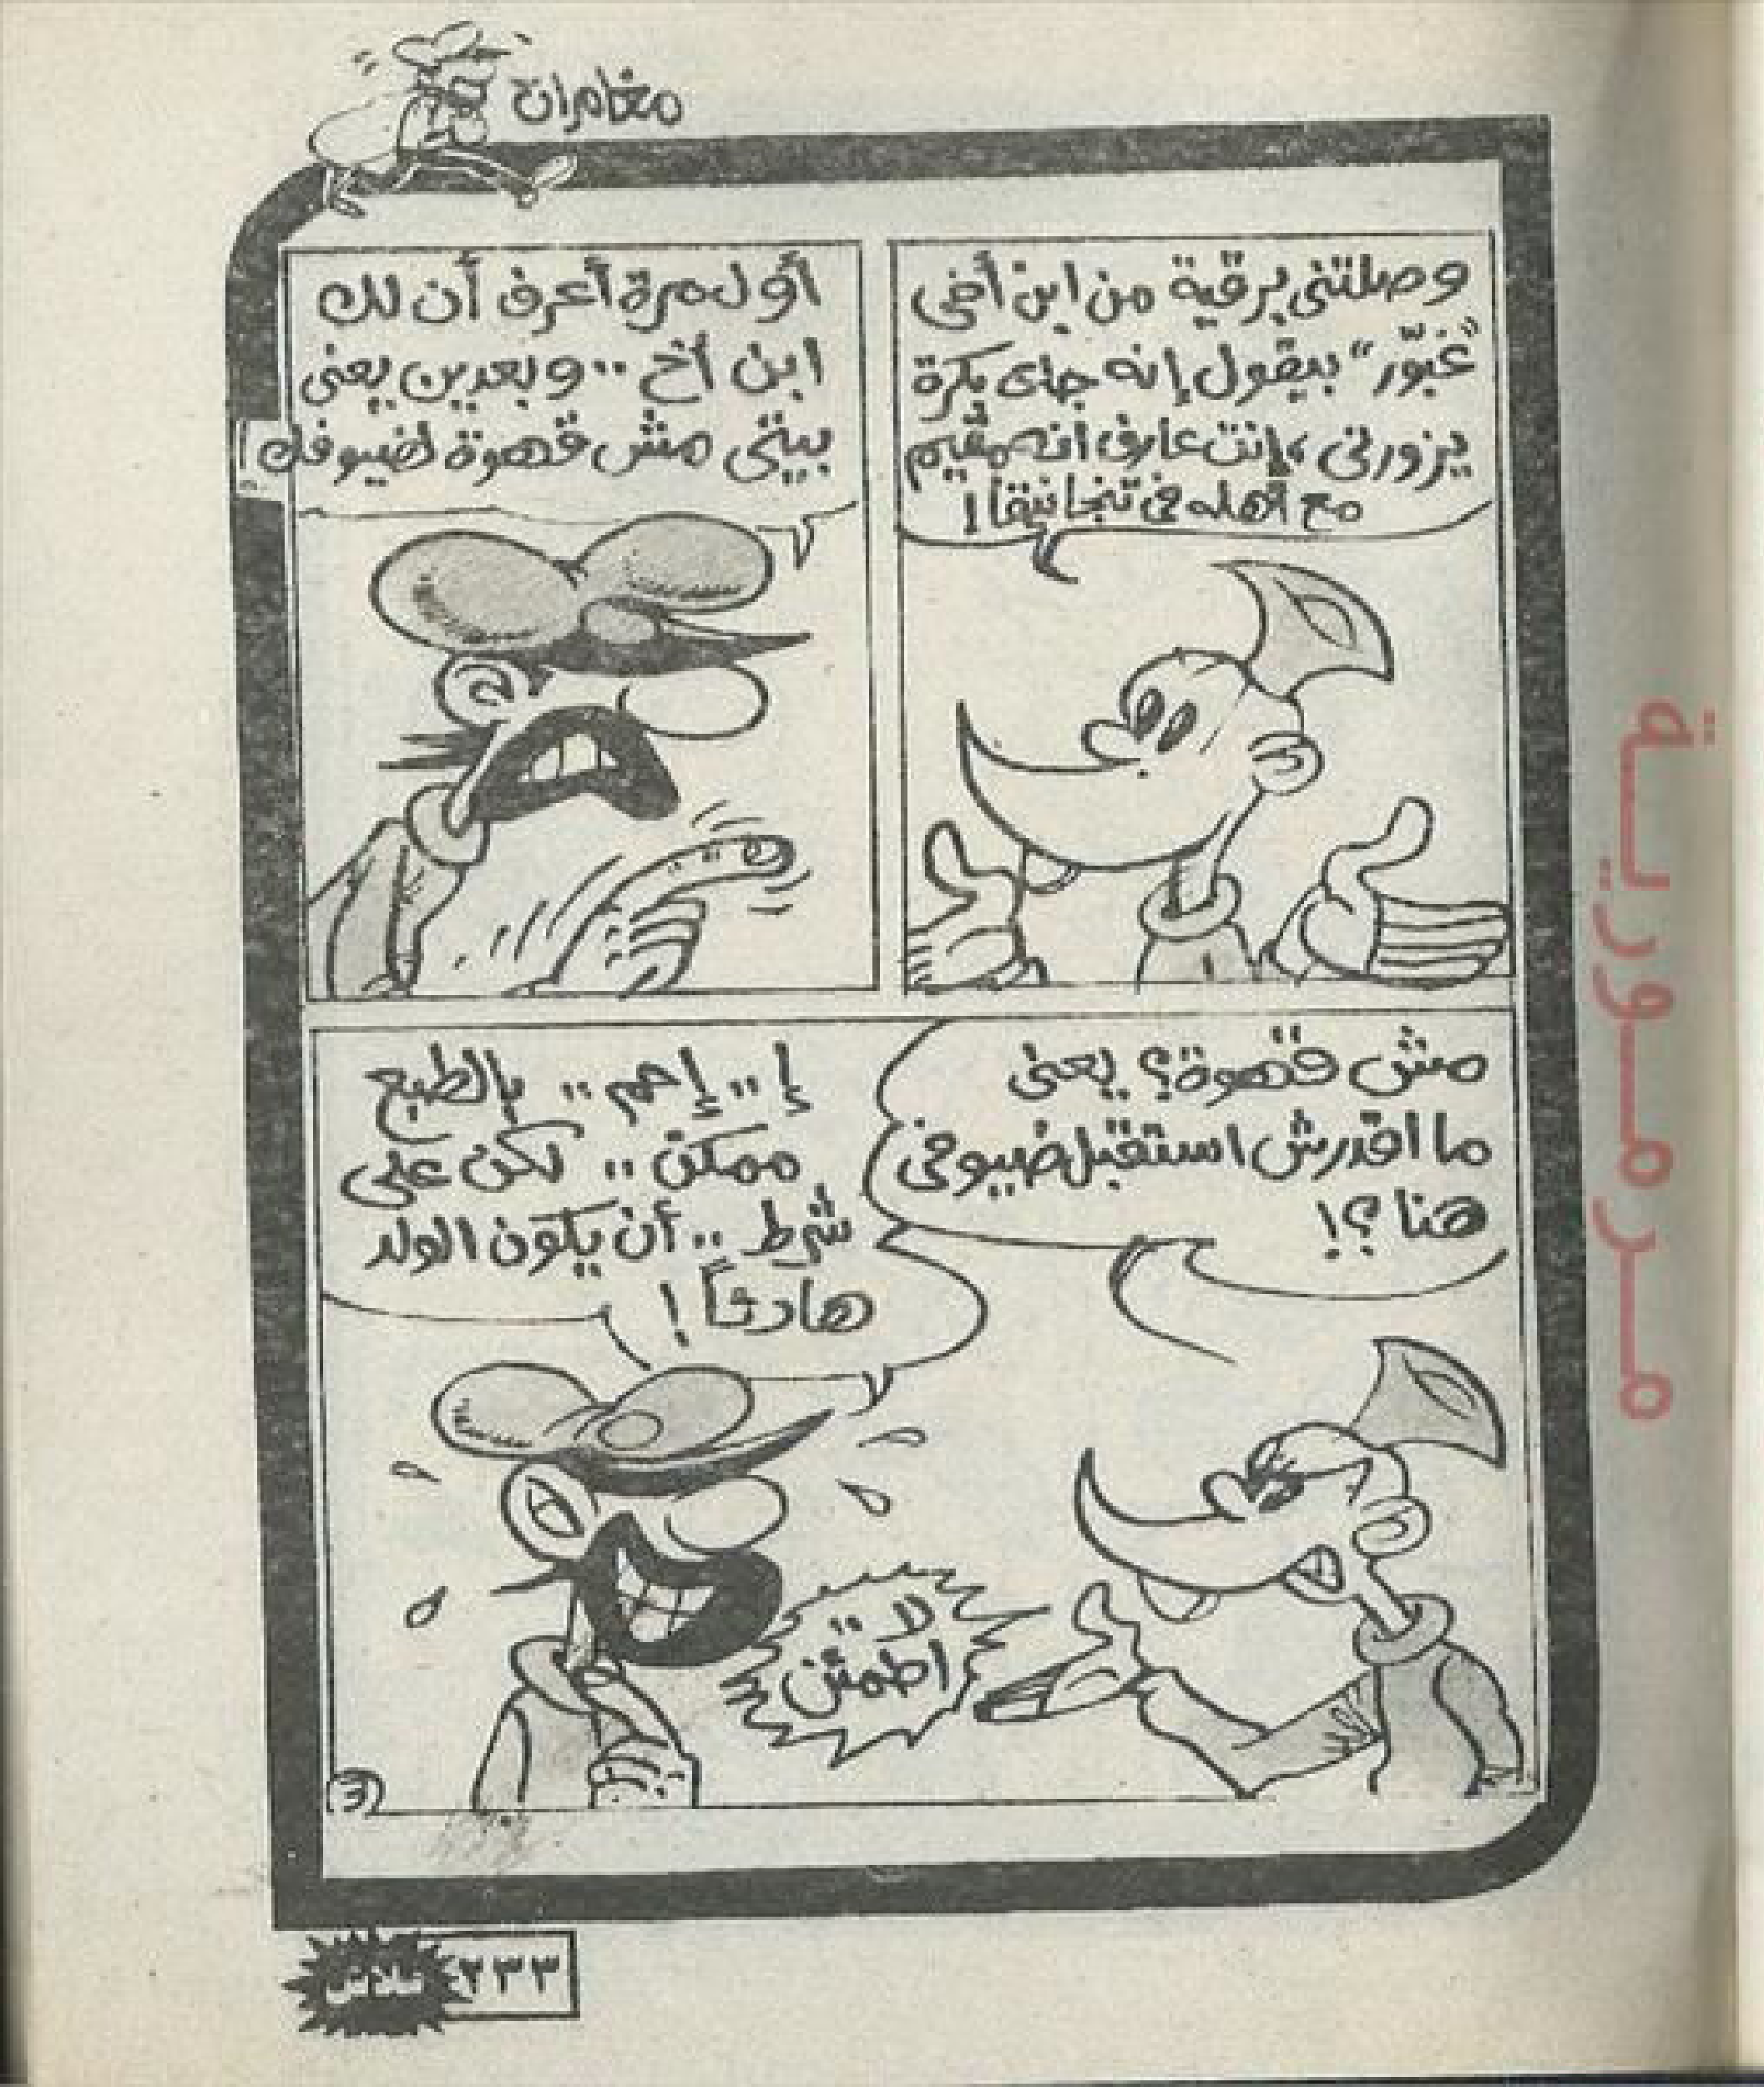 مغامرات
وصلتنى برقية من ابن أخى
"غبّور" بيقول إنه جاى بكرة
يزورنى، إنت عارف انه مقيم
مع أهله فى تنجانيقا!
أول مرة أعرف أن لك
ابن أخ .. وبعدين يعنى
بيتى مش قهوة لضيوفك!
مش قهوة؟ يعنى
ما اقدرش استقبل ضيوفى
هنا؟!
إ .. إحم .. بالطبع
ممكن .. لكن على
شرط .. أن يكون الولد
هادئاً!
لا ..
اطمئن
٣
فلاش ٢٣٣
مـرمـوريـة